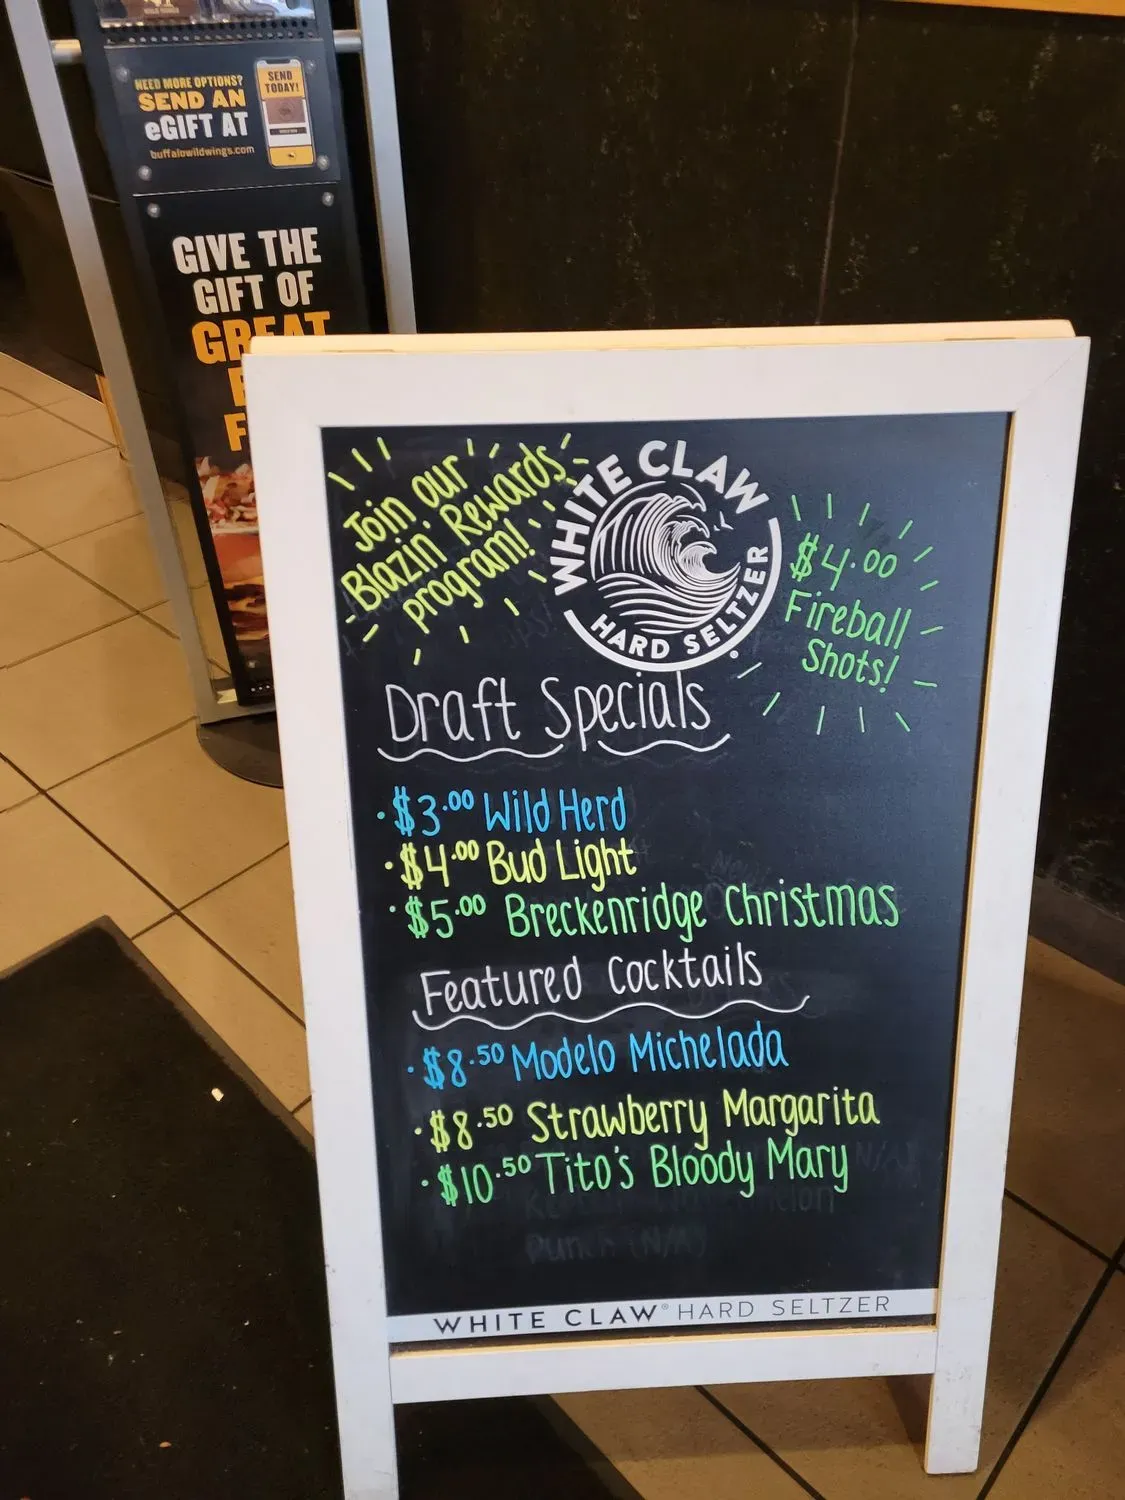 NEED MORE OPTIONS?
SEND AN
eGIFT AT
buffalowildwings.com
SEND
TODAY!
GIVE THE
GIFT OF
GREAT
Join our
Blazin' Rewards
program!
WHITE CLAW
HARD SELTZER
$4.00
Fireball
Shots!
Draft Specials
· $3.00 Wild Herd
· $4.00 Bud Light
· $5.00 Breckenridge Christmas
Featured Cocktails
· $8.50 Modelo Michelada
· $8.50 Strawberry Margarita
· $10.50 Tito's Bloody Mary
WHITE CLAW® HARD SELTZER